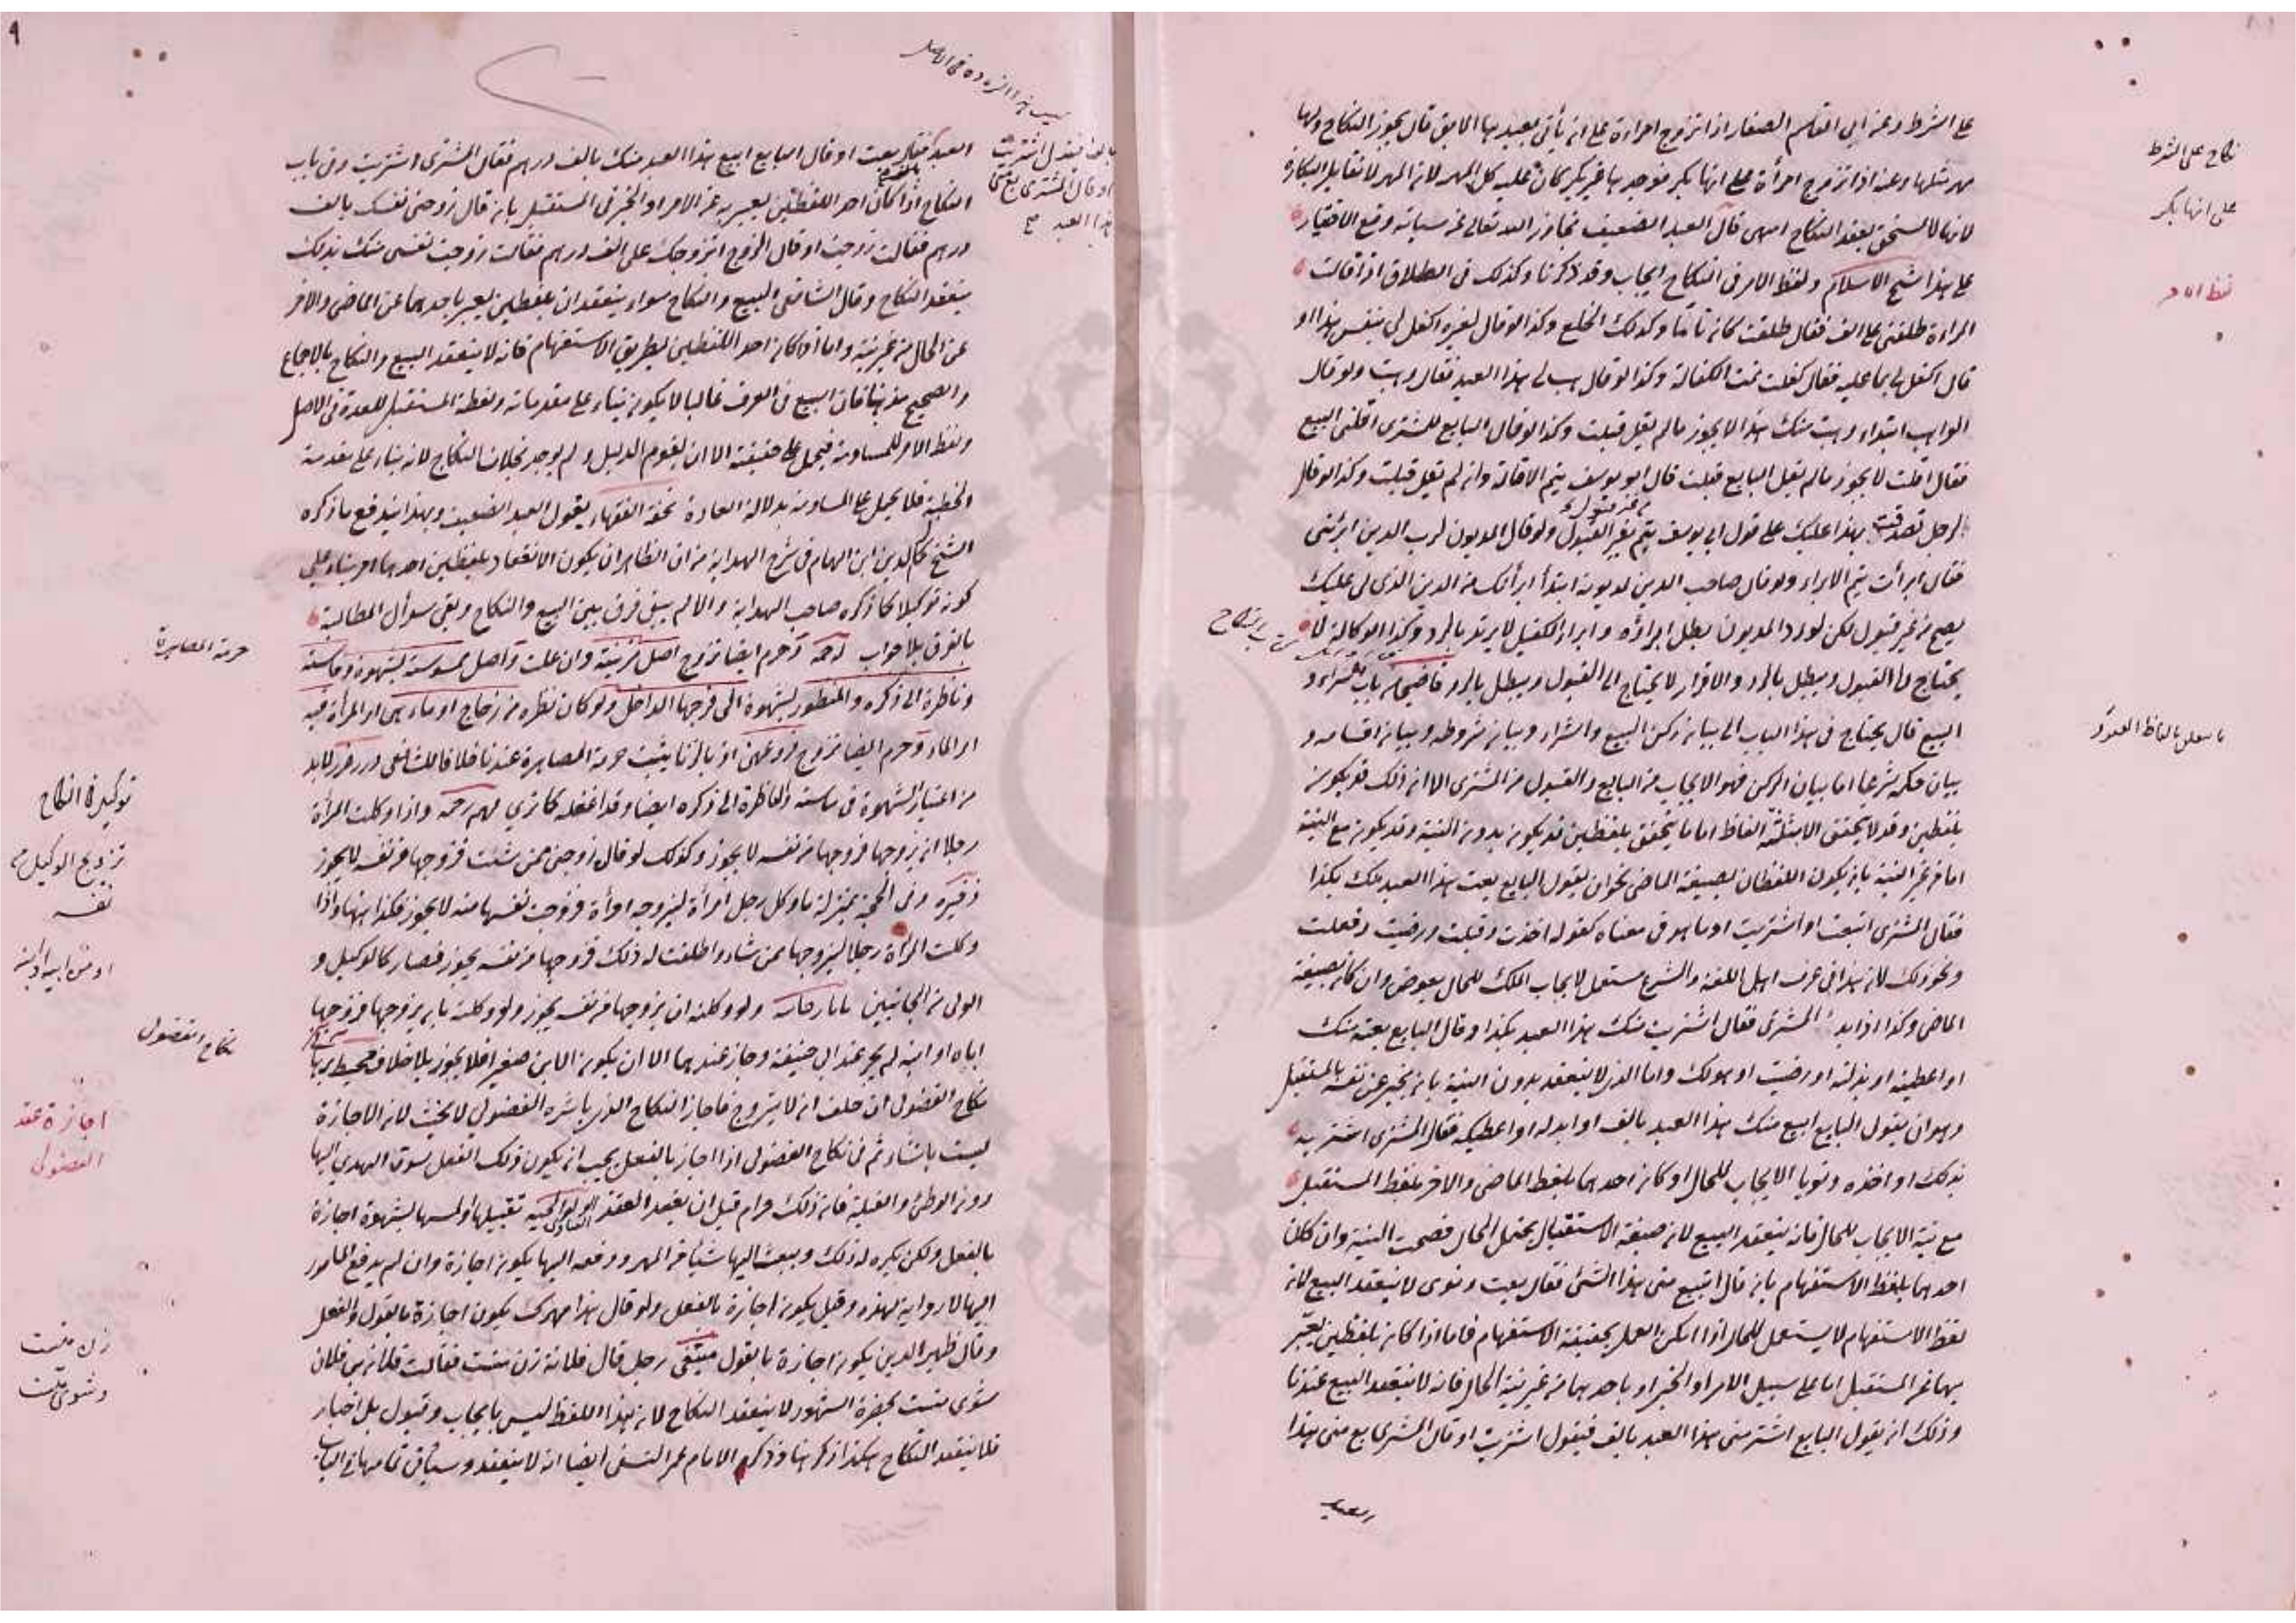 على الشرط وعن ابي القاسم الصفار اذا تزوج امراءة على انه يأتي بعبد بها الابق قال يجوز النكاح ولها
مهر مثلها وعنه اذا تزوج امرأة على انها بكر فوجدها غير بكر كان عليه كل المهر لان المهر لا تقابل البكارة
لانها لا تستحق بعقد النكاح انتهى قال العبد الضعيف تجاوز الله تعالى عن سيئاته وقع الاختيار
على هذا شيخ الاسلام ولفظ الامر في النكاح ايجاب وقد ذكرنا وكذلك في الطلاق اذا قالت
المراءة طلقني على الف فقال طلقت كان تاما وكذلك الخلع وكذا لو قال لغيره اكفل لي بنفس هذا او
قال اكفل لي بما عليه فقال كفلت تمت الكفالة وكذا لو قال هب لي هذا العبد فقال وهبت ولو قال
الواهب ابتداء وهبت منك هذا لا يجوز ما لم يقل قبلت وكذا لو قال البايع للمشتري اقلني البيع
فقال اقلت لا يجوز ما لم يقل البايع قبلت قال ابو يوسف يتم الاقالة وان لم يقل قبلت وكذا لو قال
لرجل تصدقت بهذا عليك على قول ابي يوسف يتم بغير القبول ولو قال المديون لرب الدين ابرئني
فقال ابرأت يتم الابراء ولو قال صاحب الدين لمديونه ابتدأ ابرأتك من الدين الذي لي عليك
يصح من غير قبول لكن لو رد المديون بطل ابراؤه وابراء الكفيل لا يرتد بالرد وكذا الوكالة لا
يحتاج الى القبول ويبطل بالرد والاقرار لا يحتاج الى القبول ويبطل بالرد قاضيخان باب الشراء و
البيع قال يحتاج في هذا الباب الى بيان ركن البيع والشراء وبيان شروطه وبيان اقسامه و
بيان حكمه شرعا اما بيان الركن فهو الايجاب من البايع والقبول من المشتري الا ان ذلك قد يكون
بلفظين وقد لا يتحقق الا بثلثة الفاظ اما ما يتحقق بلفظين قد يكون بدون النية وقد يكون مع النية
اما من غير النية بان يكون اللفظان بصيغة الماضي نحو ان يقول البايع بعت هذا العبد منك بكذا
فقال المشتري ابتعت او اشتريت او ما هو في معناه كقوله اخذت وقبلت ورضيت وفعلت
ونحو ذلك لان هذا في عرف اهل اللغة والشرع مستعمل لايجاب الملك للحال بعوض وان كان بصيغة
الماضي وكذا اذا بدء المشتري فقال اشتريت منك هذا العبد بكذا وقال البايع بعته منك
او اعطيته او بذلته او رضيت او هو لك واما الذي لا ينعقد بدون النية بان يخبر عن نفسه بالمستقبل
وهو ان يقول البايع ابيع منك هذا العبد بالف او ابدله او اعطيكه فقال المشتري اشتريه
بذلك او اخذه ونويا الايجاب للحال او كان احدهما بلفظ الماضي والاخر بلفظ المستقبل
مع نية الايجاب للحال فانه ينعقد البيع لان صيغة الاستقبال يحتمل الحال فصحت النية وان كان
احدهما بلفظ الاستفهام بان قال اتبيع مني هذا الشئ فقال بعت ونوى لا ينعقد البيع لان
لفظ الاستفهام لا يستعمل للحال اذا امكن العمل بحقيقة الاستفهام فاما اذا كان بلفظين يعبر
بهما عن المستقبل اما على سبيل الامر او الخبر او باحدهما من غير نية الحال فانه لا ينعقد البيع عندنا
وذلك ان يقول البايع اشتر مني هذا العبد بالف فيقول اشتريت او قال المشتري بع مني هذا
العبد
نكاح على الشرط
على انها بكر
لفظ امر
العبد فقال بعت او قال البايع ابيع هذا العبد منك بالف درهم فقال المشتري اشتريت وفي باب
النكاح اذا كان احد اللفظين يعبر به عن الامر او الخبر في المستقبل بان قال زوجني نفسك بالف
درهم فقالت زوجت او قال الزوج اتزوجك على الف درهم فقالت زوجت نفسي منك بذلك
ينعقد النكاح وقال الشافعي البيع والنكاح سواء ينعقدان بلفظين يعبر باحدهما عن الماضي والاخر
عن الحال من غير نية واما اذا كان احد اللفظين بطريق الاستفهام فانه لا ينعقد البيع والنكاح بالاجماع
والصحيح مذهبنا فان البيع في العرف غالبا لا يكون بناء على مقدمات ولفظة المستقبل للعدة في الاصل
ولفظ الامر للمساومة فيحمل على حقيقته الا ان يقوم الدليل ولم يوجد بخلاف النكاح لانه بناء على مقدمة
الخطبة فلا يحمل على المساومة بدلالة العادة تحفة الفقهاء يقول العبد الضعيف وبهذا يندفع ما ذكره
الشيخ كمال الدين ابن الهمام في شرح الهداية من ان الظاهر ان يكون الانعقاد بلفظين احدهما امر بناء على
كونه توكيلا كما ذكره صاحب الهداية والا لم يبق فرق بين البيع والنكاح وبقي سؤال المطالبة
بالفرق بلا جواب وحرم ايضا تزوج اصل مزنيته وان علت واصل ممسوسته بشهوة وماسته
وناظرة الى ذكره والمنظور بشهوة الى فرجها الداخل ولو كان نظره من زجاج او ماء هي اي المرأة فيه
اي الماء وحرم ايضا تزوج فروعهن اذ بالزنا يثبت حرمة المصاهرة عندنا خلافا للشافعي درر غرر لا بد
من اعتبار الشهوة في ماسته والناظرة الى ذكره ايضا وقد اغفله كما ترى واذا وكلت المرأة
رجلا ان يزوجها فزوجها من نفسه لا يجوز وكذلك لو قال زوجني ممن شئت فزوجها من نفسه لا يجوز
ذخيره وفي الحجة بمنزلة ما وكل رجل امرأة ليزوجه امرأة فزوجت نفسها منه لا يجوز فكذا هنا واذا
وكلت المرأة رجلا ليزوجها ممن شاء واطلقت له ذلك فزوجها من نفسه يجوز فصار كالوكيل و
الولي من الجانبين تاتارخانيه ولو وكلته ان يزوجها من نفسه يجوز ولو وكلته بان يزوجها فزوجها
اباه او ابنه لم يجز عند ابي حنيفة وجاز عندهما الا ان يكون الابن صغيرا فلا يجوز بلا خلاف محيط برهاني
نكاح الفضولي ان حلف انه لا يتزوج فاجاز النكاح الذي باشره الفضولي لا يحنث لان الاجازة
ليست بانشاء ثم في نكاح الفضولي اذا اجاز بالفعل يجب ان يكون ذلك الفعل سوق الهدي اليها
دون الوطئ والقبلة فان ذلك حرام قبل ان ينعقد العقد تقبيلها ولمسها بشهوة اجازة
بالفعل ولكن يكره له ذلك وبعث اليها شيئا من المهر ودفعه اليها يكون اجازة وان لم يدفع المأمور
اليها لا رواية لهذه وقيل يكون اجازة بالفعل ولو قال هذا مهرك يكون اجازة بالقول والفعل
وقال ظهير الدين يكون اجازة بالقول رجل قال فلانة زن منست فقالت فلانة بن فلان
شوى منست بحضرة الشهود لا ينعقد النكاح لان هذا اللفظ ليس بايجاب وقبول بل اخبار
فلا ينعقد النكاح هكذا ذكر هنا وذكر الامام عمر النسفي ايضا انه لا ينعقد وسيأتي تمامها في الباب
حرمة المصاهرة
توكيل في النكاح
تزويج الوكيل من
نفسه
او من ابيه او ابنه
نكاح الفضولي
اجازة عقد
الفضولي
زن منست
وشوى منست